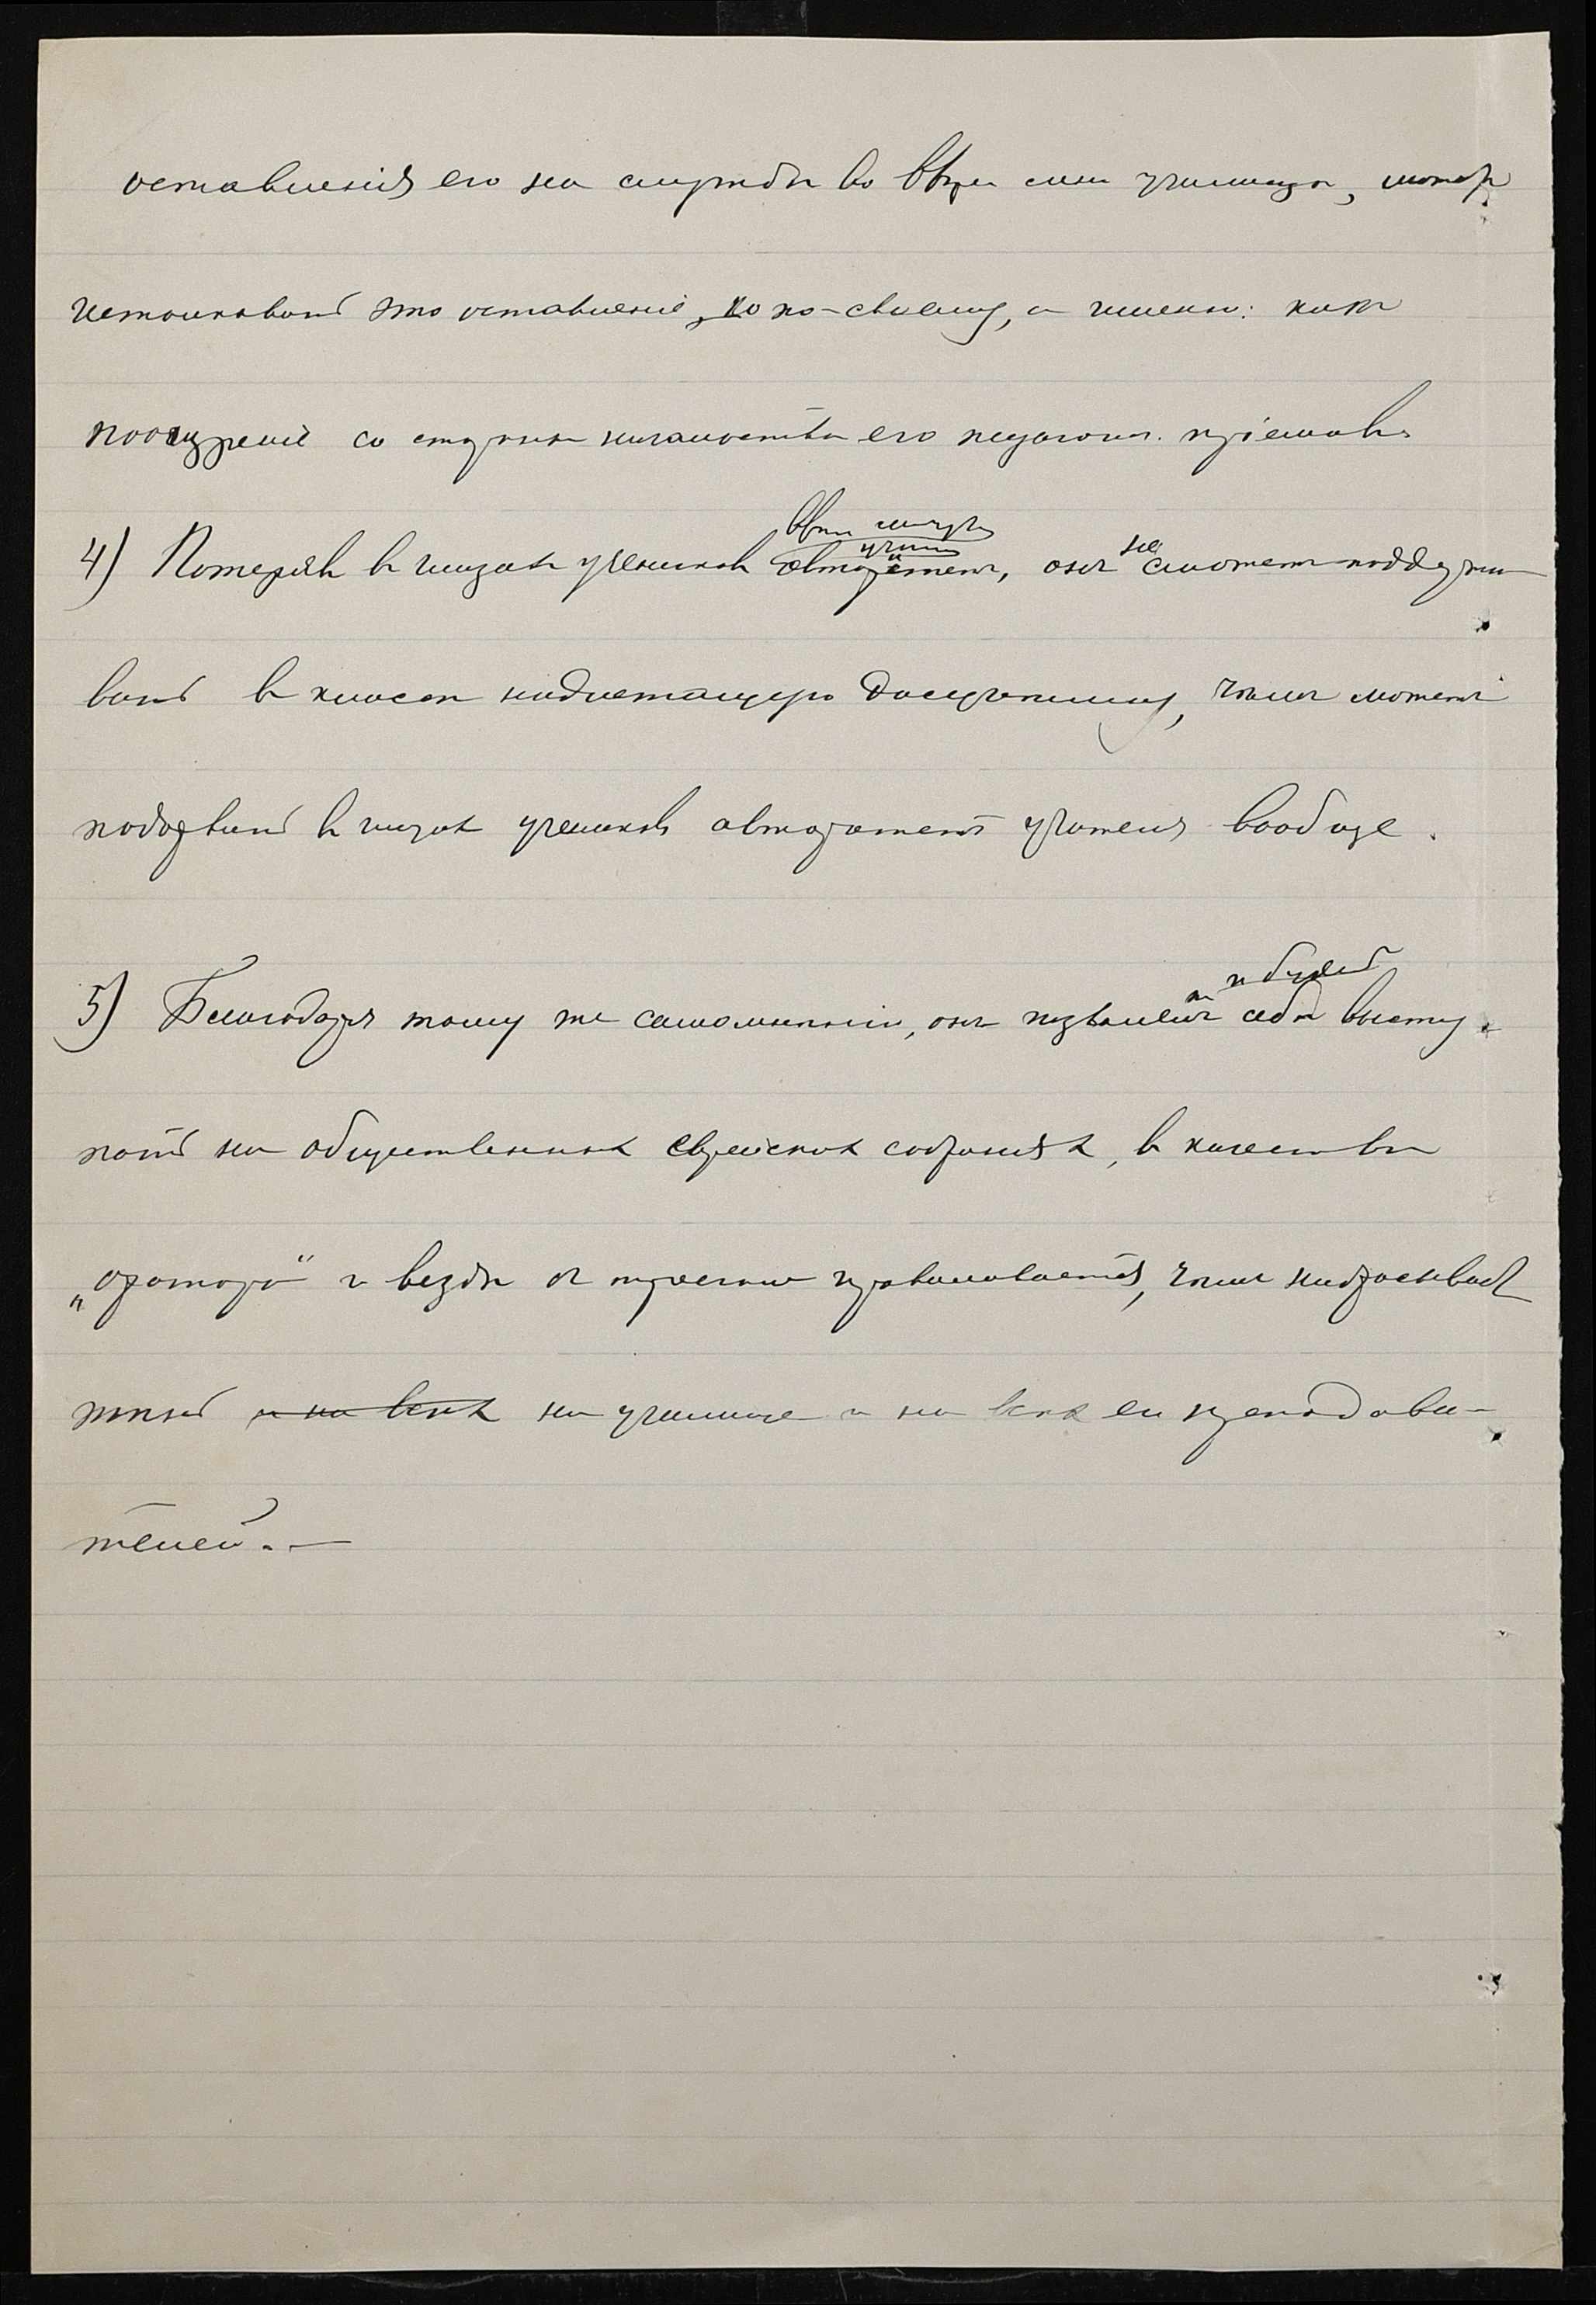 оставленія его на службѣ во ввѣр. мнѣ училищѣ, можетъ
истолковать это оставленіе, по-своему, а именно: какъ
поощреніе со стороны начальства его педагогич. пріемовъ
4) Потерявъ въ глазахъ учениковъ авторитетъ, онъ не сможетъ поддержи-
вать въ классѣ надлежащую дисциплину, чѣмъ можетъ
подорвать въ глазахъ учениковъ авторитетъ учителя вообще.
и будетъ
5) Благодаря тому же самомнѣнію, онъ позволяетъ себѣ высту-
пать на общественныхъ еврейскихъ собраніяхъ, въ качествѣ
„оратора“ и вездѣ съ трескомъ проваливается, чѣмъ набрасываетъ
тѣнь и на всѣхъ на училище и на всѣхъ его преподава-
телей. —